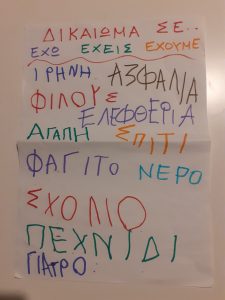 ΔΙΚΑΙΩΜΑ ΣΕ..
ΕΧΩ ΕΧΕΙΣ ΕΧΟΥΜΕ
ΙΡΗΝΗ ΑΣΦΑΛΙΑ
ΦΙΛΟΥΣ
ΕΛΕΦΘΕΡΙΑ
ΑΓΑΠΗ ΣΠΙΤΙ
ΦΑΓΙΤΟ ΝΕΡΟ
ΣΧΟΛΙΟ
ΠΕΧΝΙΔΙ
ΓΙΑΤΡΟ